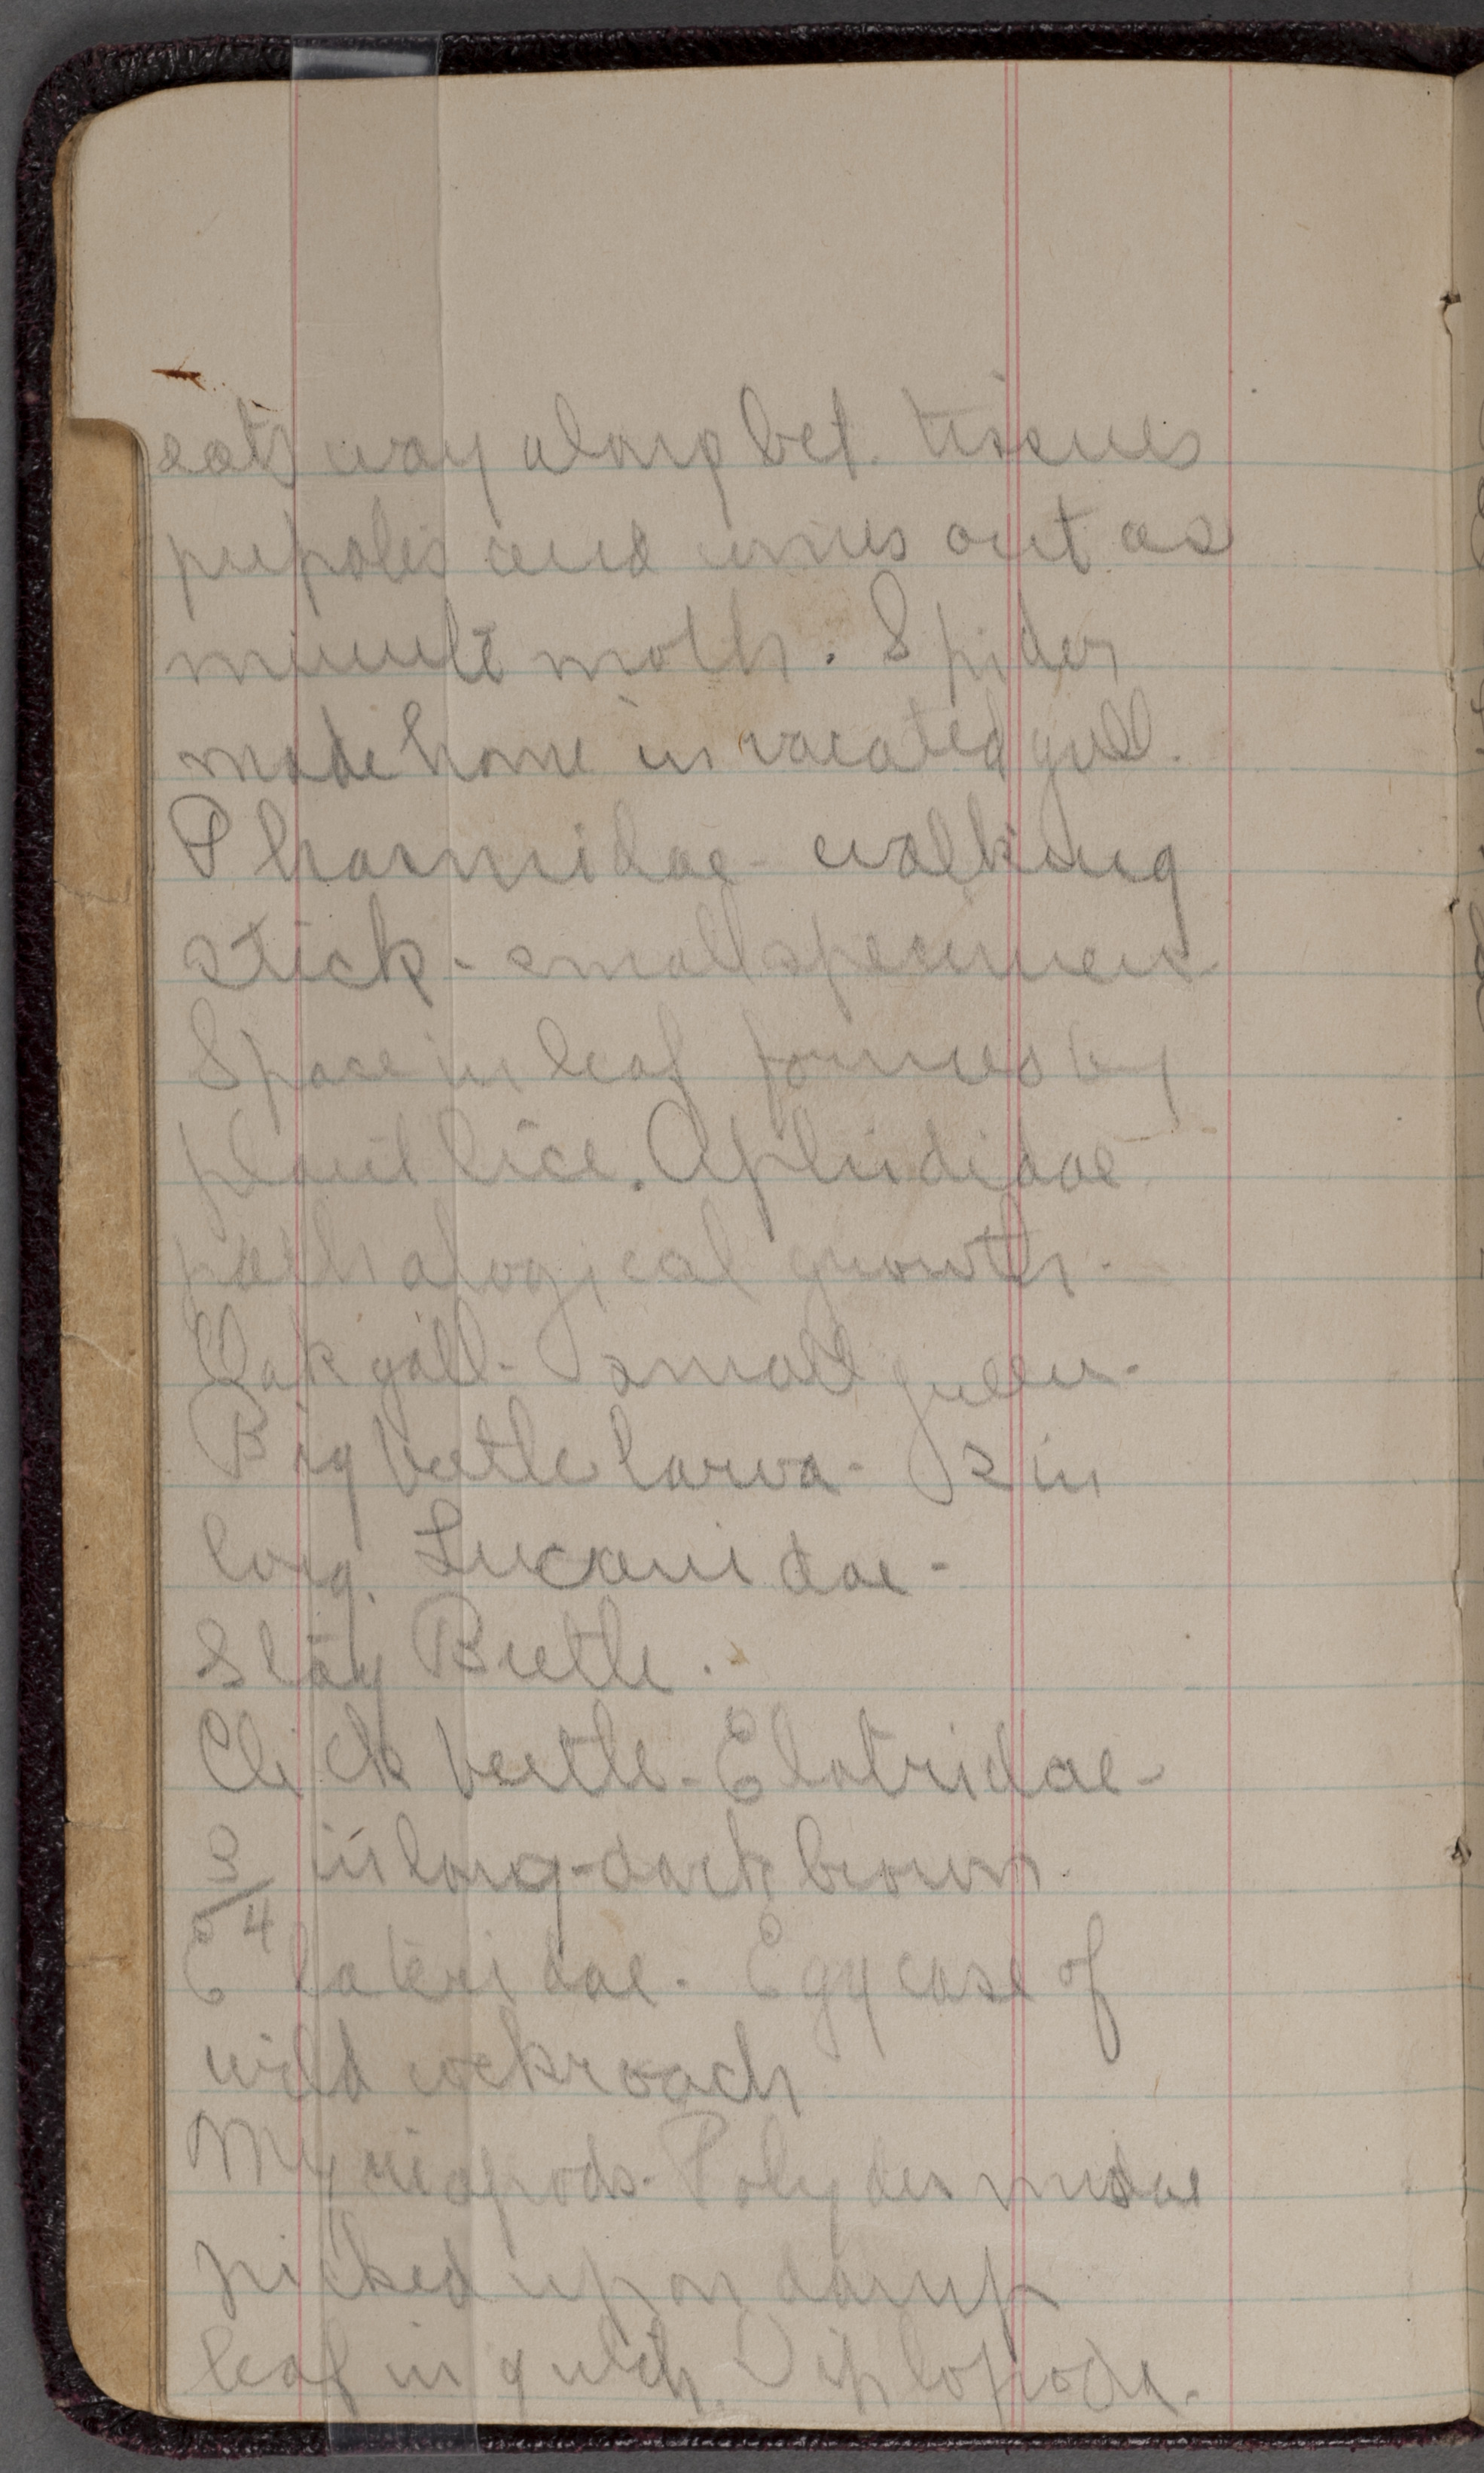 eats way along bet. tissues
pupates and comes out as
minute moth. Spider
made home in vacated gall.
Phasmidae - walking
stick - small specimen
Space in leaf formed by
plant lice. Aphididae
pathological growth.
Oak gall - small green -
Big beetle larva - 2 in
long. Lucanidae -
Stag Beetle.
Click beetle - Elatridae -
3/4 in long - dark brown.
Elateridae. Egg case of
wild cockroach
Myriapods - Polydesmidae
picked up on damp
leaf in gulch. Diplopoda.